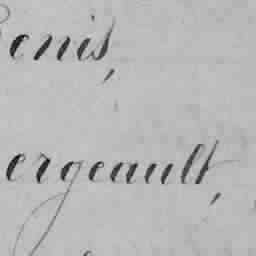 enis,
ergeault,